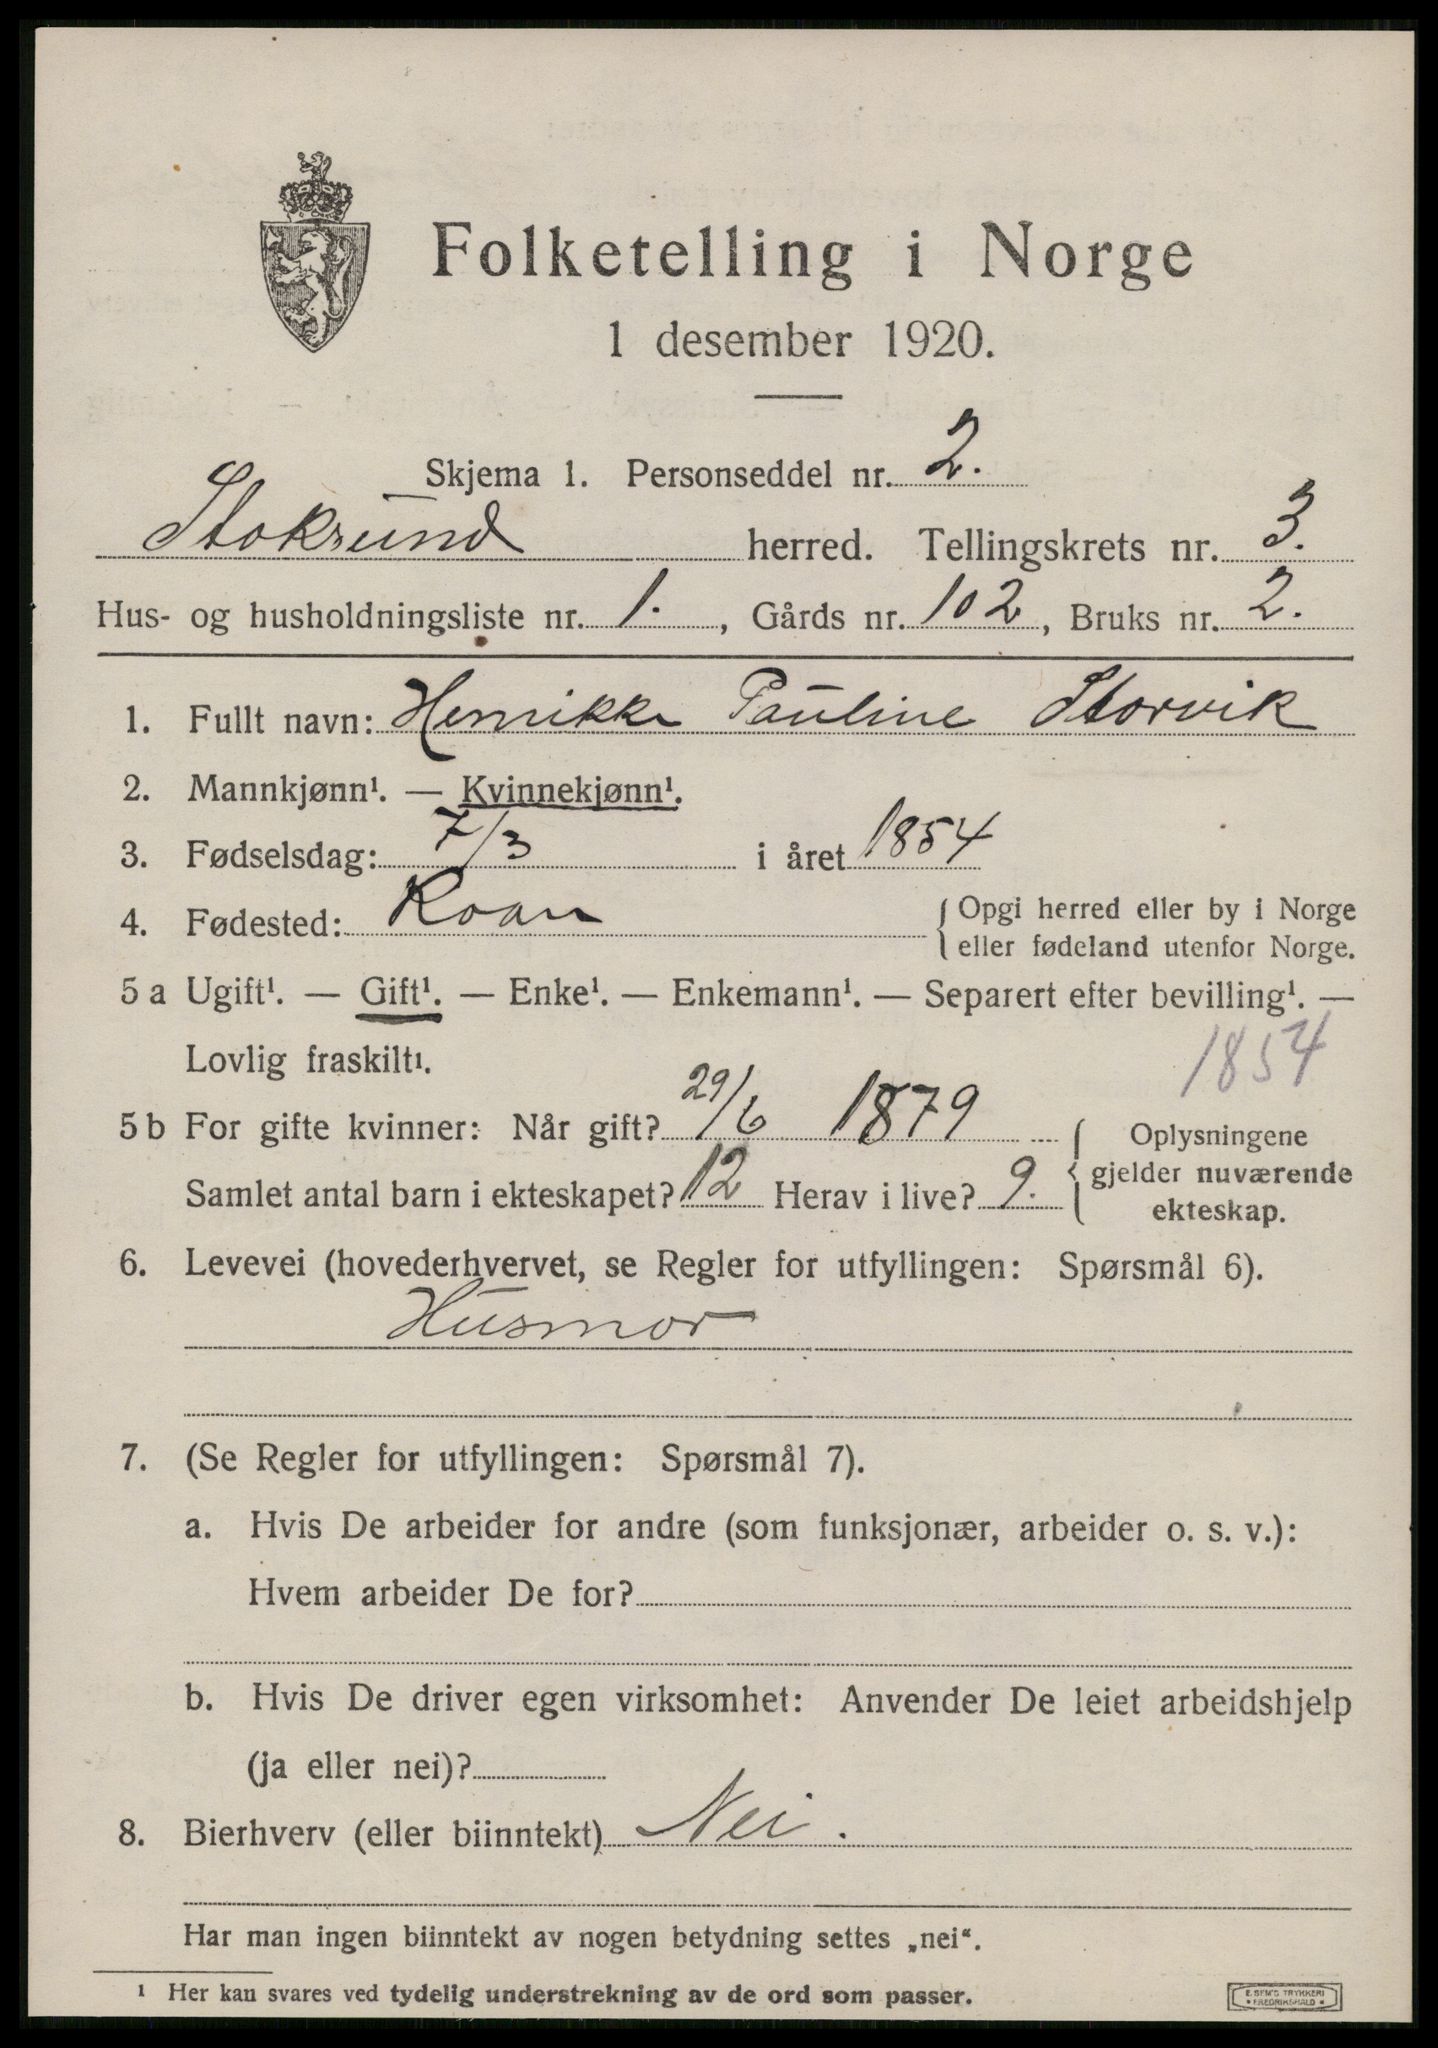 Folketelling i Norge
1 desember 1920.
Skjema 1. Personseddel nr. 2.
Stoksund herred. Tellingskrets nr. 3.
Hus- og husholdningsliste nr. 1., Gårds nr. 102, Bruks nr. 2.
1. Fullt navn: Henrikke Pauline Storvik
2. Mannkjønn¹. — Kvinnekjønn¹.
3. Fødselsdag: 7/3 i året 1854
4. Fødested: Roan { Opgi herred eller by i Norge
eller fødeland utenfor Norge.
5 a Ugift¹. — Gift¹. — Enke¹. — Enkemann¹. — Separert efter bevilling¹. —
Lovlig fraskilt¹. 1854
5 b For gifte kvinner: Når gift? 29/6 1879 { Oplysningene
gjelder nuværende
Samlet antal barn i ekteskapet? 12 Herav i live? 9.
ekteskap.
6. Levevei (hovederhvervet, se Regler for utfyllingen: Spørsmål 6).
Husmor
7. (Se Regler for utfyllingen: Spørsmål 7).
a. Hvis De arbeider for andre (som funksjonær, arbeider o. s. v.):
Hvem arbeider De for?
b. Hvis De driver egen virksomhet: Anvender De leiet arbeidshjelp
(ja eller nei)?
8. Bierhverv (eller biinntekt) Nei.
Har man ingen biinntekt av nogen betydning settes „nei“.
¹ Her kan svares ved tydelig understrekning av de ord som passer.
E. SEM'S TRYKKERI
• FREDRIKSHALD •